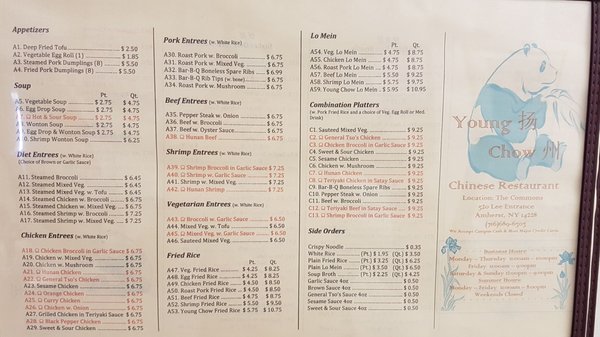 Appetizers
A1. Deep Fried Tofu $ 2.50
A2. Vegetable Egg Roll (1) $ 1.85
A3. Steamed Pork Dumplings (8) $ 5.50
A4. Fried Pork Dumplings (8) $ 5.50
Soup
Pt. Qt.
A5. Vegetable Soup $ 2.75 $ 4.75
A6. Egg Drop Soup $ 2.75 $ 4.75
A7. Hot & Sour Soup $ 2.75 $ 4.75
A8. Wonton Soup $ 2.75 $ 4.75
A9. Egg Drop & Wonton Soup $ 2.75 $ 4.75
A10. Shrimp Wonton Soup $ 6.25
Diet Entrees (w. White Rice)
(Choice of Brown or Garlic Sauce)
A11. Steamed Broccoli $ 6.45
A12. Steamed Mixed Veg. $ 6.45
A13. Steamed Mixed Veg. w. Tofu $ 6.45
A14. Steamed Chicken w. Broccoli $ 6.75
A15. Steamed Chicken w. Mixed Veg. $ 6.75
A16. Steamed Shrimp w. Broccoli $ 7.25
A17. Steamed Shrimp w. Mixed Veg. $ 7.25
Chicken Entrees (w. White Rice)
A18. Chicken Broccoli in Garlic Sauce $ 6.75
A19. Chicken w. Mixed Veg. $ 6.75
A20. Chicken w. Mushroom $ 6.75
A21. Hunan Chicken $ 6.75
A22. General Tso's Chicken $ 6.75
A23. Sesame Chicken $ 6.75
A24. Orange Chicken $ 6.75
A25. Curry Chicken $ 6.75
A26. Chicken w. Onion $ 6.75
A27. Grilled Chicken in Teriyaki Sauce $ 6.75
A28. Black Pepper Chicken $ 6.75
A29. Sweet & Sour Chicken $ 6.75
Pork Entrees (w. White Rice)
A30. Roast Pork w. Broccoli $ 6.75
A31. Roast Pork w. Mixed Veg. $ 6.75
A32. Bar-B-Q Boneless Spare Ribs $ 6.99
A33. Bar-B-Q Rib Tips (w. bone) $ 6.75
A34. Roast Pork w. Mushroom $ 6.75
Beef Entrees (w. White Rice)
A35. Pepper Steak w. Onion $ 6.75
A36. Beef w. Broccoli $ 6.75
A37. Beef w. Oyster Sauce $ 6.75
A38. Hunan Beef $ 6.75
Shrimp Entrees (w. White Rice)
A39. Shrimp Broccoli in Garlic Sauce $ 7.25
A40. Shrimp w. Garlic Sauce $ 7.25
A41. Shrimp w. Mixed Veg. $ 7.25
A42. Hunan Shrimp $ 7.25
Vegetarian Entrees (w. White Rice)
A43. Broccoli w. Garlic Sauce $ 6.50
A44. Mixed Veg. w. Tofu $ 6.50
A45. Mixed Veg. w. Garlic Sauce $ 6.50
A46. Sauteed Mixed Veg. $ 6.50
Fried Rice
Pt. Qt.
A47. Veg. Fried Rice $ 4.25 $ 8.25
A48. Egg Fried Rice $ 4.25 $ 8.25
A49. Chicken Fried Rice $ 4.50 $ 8.50
A50. Roast Pork Fried Rice $ 4.50 $ 8.50
A51. Beef Fried Rice $ 4.75 $ 8.75
A52. Shrimp Fried Rice $ 5.50 $ 9.50
A53. Young Chow Fried Rice $ 5.75 $ 10.75
Lo Mein
Pt. Qt.
A54. Veg. Lo Mein $ 4.75 $ 8.75
A55. Chicken Lo Mein $ 4.75 $ 8.75
A56. Roast Pork Lo Mein $ 4.75 $ 8.75
A57. Beef Lo Mein $ 5.50 $ 9.25
A58. Shrimp Lo Mein $ 5.75 $ 9.75
A59. Young Chow Lo Mein $ 5.95 $ 10.95
Combination Platters
(w. Pork Fried Rice and a choice of Veg. Egg Roll or Med. Drink)
C1. Sauteed Mixed Veg. $ 9.25
C2. General Tso's Chicken $ 9.25
C3. Chicken Broccoli in Garlic Sauce $ 9.25
C4. Sweet & Sour Chicken $ 9.25
C5. Sesame Chicken $ 9.25
C6. Chicken w. Mushroom $ 9.25
C7. Hunan Chicken $ 9.25
C8. Teriyaki Chicken in Satay Sauce $ 9.25
C9. Bar-B-Q Boneless Spare Ribs $ 9.25
C10. Pepper Steak w. Onion $ 9.25
C11. Beef w. Broccoli $ 9.25
C12. Teriyaki Beef in Satay Sauce $ 9.25
C13. Shrimp Broccoli in Garlic Sauce $ 9.25
Side Orders
Crispy Noodle $ 0.35
White Rice (Pt.) $ 1.95 (Qt.) $ 3.50
Plain Fried Rice (Pt.) $ 3.25 (Qt.) $ 6.25
Plain Lo Mein (Pt.) $ 3.50 (Qt.) $ 6.50
Soup Broth (Pt.) $ 2.25 (Qt.) $ 4.25
Garlic Sauce 4oz $ 0.50
Brown Sauce 4oz $ 0.50
General Tso's Sauce 4oz $ 0.50
Sesame Sauce 4oz $ 0.50
Sweet & Sour Sauce 4oz $ 0.50
Young 扬
Chow 州
Chinese Restaurant
Location: The Commons
520 Lee Entrance
Amherst, NY 14228
(716)689-6505
We Accept Campus Cash & Most Major Credit Cards
Business Hour
Monday – Thursday
Friday
Saturday & Sunday
Summer Hours
Monday – Friday
Weekends Closed